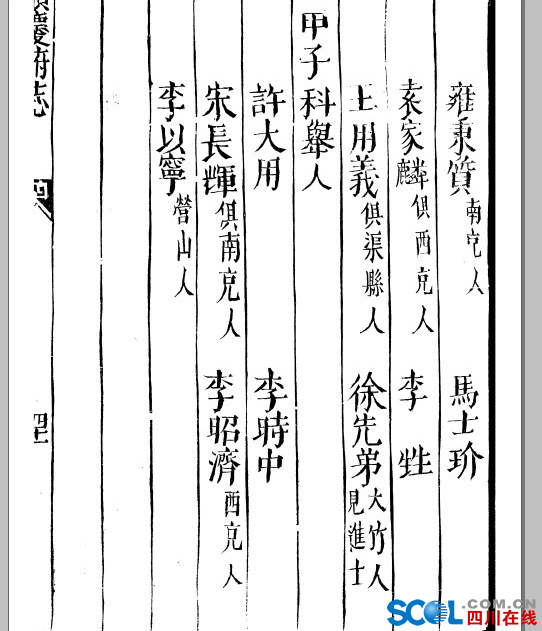 雍秉質南充人 馬士玠
袁家麟俱西充人 李甡
王用義俱渠縣人 徐先弟大竹人見進士
甲子科舉人
許大用 李時中
宋長輝俱南充人 李昭濟西充人
李以寧營山人
慶府志
SCOL.COM.CN
四川在线